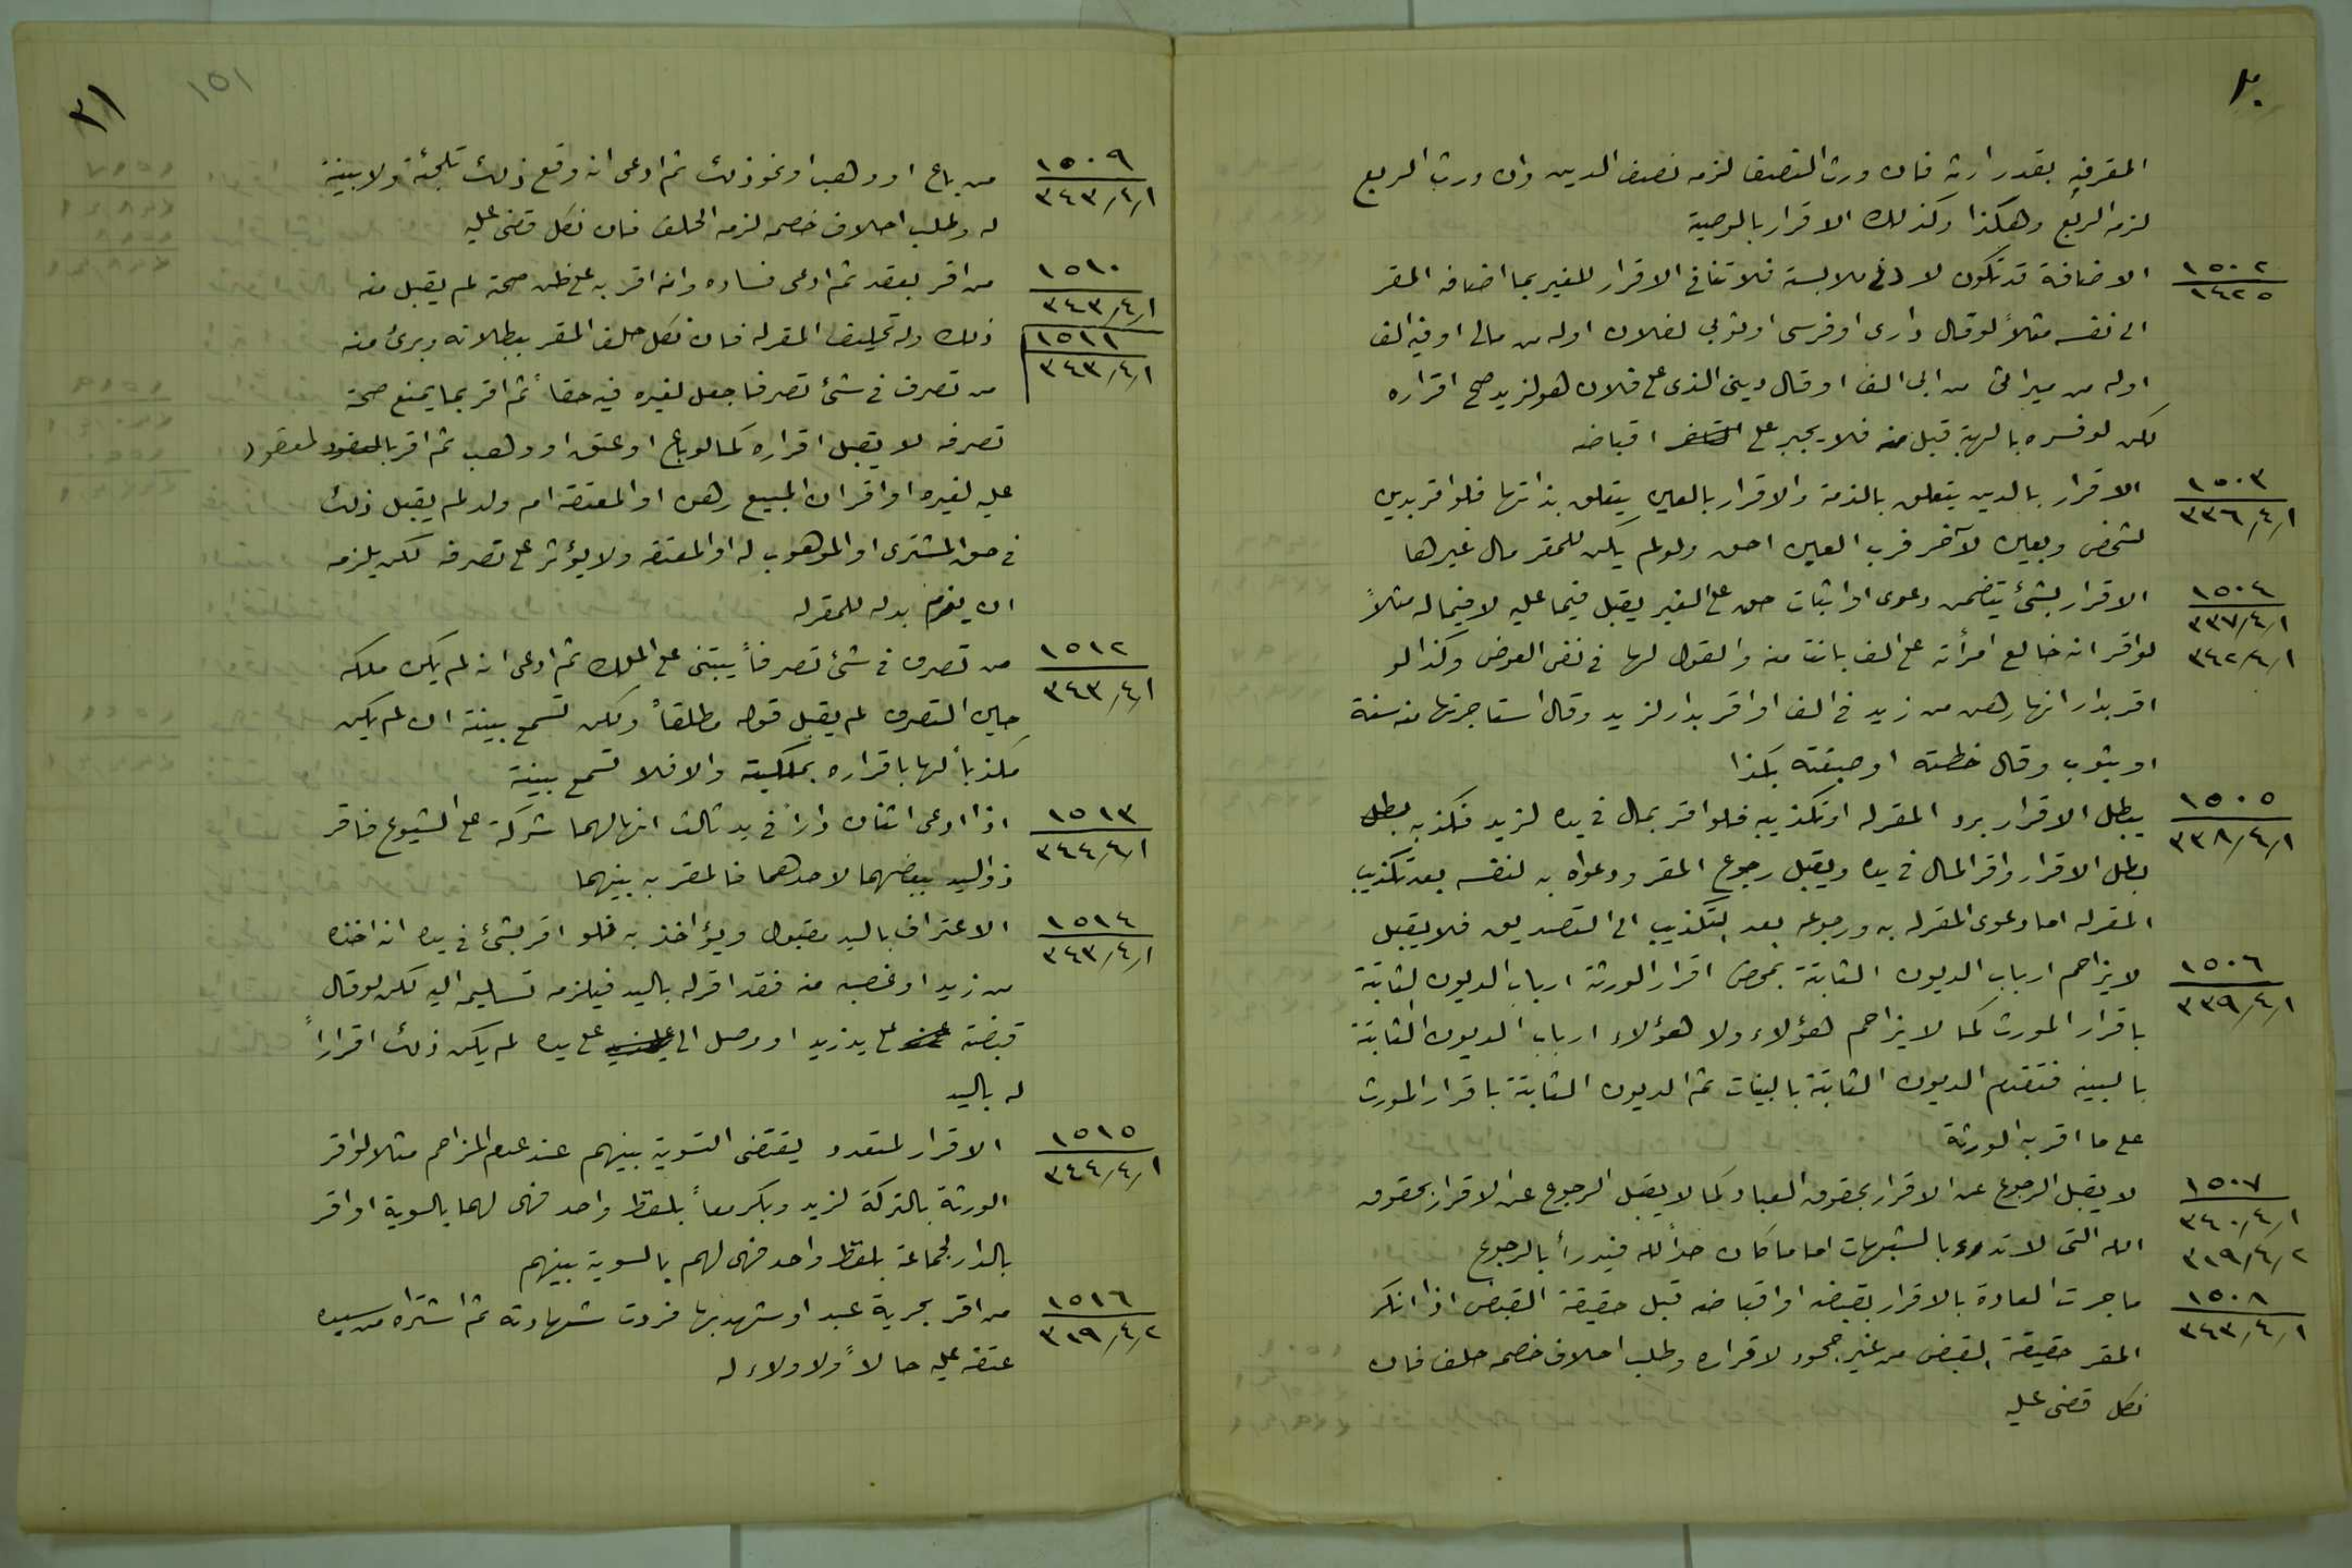 ٣٠
المقر فيه بقدر ارثه فان ورث النصف لزمه نصف الدين وان ورث الربع
لزمه الربع وهكذا وكذلك الاقرار بالوصية
١٥٠٢
١٤٢٥
الاضافة قد تكون لادنى ملابسة فلا تنافي الاقرار للغير بما اضافه المقر
الى نفسه مثلاً لو قال داري او فرسي او ثوبي لفلان او له من مالي او فيه الف
او له من ميراثي من ابي الف او قال ديني الذي على فلان هو لزيد صح اقراره
لكن لو فسره بالهبة قبل منه فلا يجبر على اقباضه
١٥٠٣
٣٣٦/٤/١
الاقرار بالدين يتعلق بالذمة والاقرار بالعين يتعلق بذاتها فلو اقر بدين
لشخص وبعين لآخر فرب العين احق ولو لم يكن للمقر مال غيرها
١٥٠٤
٣٣٧/٤/١
٣٤٢/٤/١
الاقرار بشيء يتضمن دعوى او اثبات حق على الغير يقبل فيما عليه لا فيما له مثلاً
لو اقر انه خالع امرأته على الف بانت منه والقول لها في نفي العوض وكذا لو
اقر بدار انها رهن من زيد في الف او اقر بدار لزيد وقال استاجرتها منه سنة
او بثوب وقال خطته او صبغته بكذا
١٥٠٥
٣٣٨/٤/١
يبطل الاقرار برد المقر له او تكذيبه فلو اقر بمال في يده لزيد فكذبه بطل
بطل الاقرار واقر المال في يده ويقبل رجوع المقر ودعواه به لنفسه بعد تكذيب
المقر له اما دعوى المقر له به ورجوعه بعد التكذيب الى التصديق فلا يقبل
١٥٠٦
٣٣٩/٤/١
لا يزاحم ارباب الديون الثابتة بمحض اقرار الورثة ارباب الديون الثابتة
باقرار المورث كما لا يزاحم هؤلاء ولا هؤلاء ارباب الديون الثابتة
بالبينه فتقدم الديون الثابتة بالبينات ثم الديون الثابتة باقرار المورث
على ما اقر به الورثة
١٥٠٧
٣٤٠/٤/١
٣١٩/٤/٢
لا يقبل الرجوع عن الاقرار بحقوق العباد كما لا يقبل الرجوع عن الاقرار بحقوق
الله التي لا تدرء بالشبهات اما ما كان حداً لله فيدرأ بالرجوع
١٥٠٨
٣٤٣/٤/١
ما جرت العادة بالاقرار بقبضه او اقباضه قبل حقيقة القبض اذا انكر
المقر حقيقة القبض من غير جحود لاقراره وطلب احلاف خصمه حلف فان
نكل قضي عليه
١٥١
٣١
١٥٠٩
٣٤٣/٤/١
من باع او وهب او نحو ذلك ثم ادعى انه وقع ذلك تلجئة ولا بينة
له وطلب احلاف خصمه لزمه الحلف فان نكل قضي عليه
١٥١٠
٣٤٣/٤/١
من اقر بعقد ثم ادعى فساده وانه اقر به على ظن صحته لم يقبل منه
ذلك وله تحليف المقر له فان نكل حلف المقر ببطلانه وبرئ منه
١٥١١
٣٤٣/٤/١
من تصرف في شيء تصرفا جعل لغيره فيه حقاً ثم اقر بما يمنع صحة
تصرفه لا يقبل اقراره كما لو باع او عتق او وهب ثم اقر بالمعقود
عليه لغيره او اقر ان المبيع رهن او المعتقة ام ولد لم يقبل ذلك
في حق المشتري او الموهوب له او المعتقه ولا يؤثر على تصرفه لكن يلزمه
ان يغرم بدله للمقر له
١٥١٢
٣٤٣/٤/١
من تصرف في شيء تصرفاً يبتنى على الملك ثم ادعى انه لم يكن ملكه
حين التصرف لم يقبل قوله مطلقاً ولكن تسمع بينة ان لم يكن
مكذباً لها باقراره بملكيته والا فلا تسمع بينة
١٥١٣
٣٤٤/٤/١
اذا ادعى اثنان داراً في يد ثالث انها لهما شركة على الشيوع فاقر
ذو اليد ببعضها لاحدهما فالمقر به بينهما
١٥١٤
٣٤٣/٤/١
الاعتراف باليد مقبول ويؤاخذ به فلو اقر بشيء في يده انه اخذه
من زيد او غصبه منه فقد اقر له باليد فيلزمه تسليمه اليه لكن لو قال
قبضته على يد زيد او وصل الي على يده لم يكن ذلك اقراراً
له باليد
١٥١٥
٣٤٤/٤/١
الاقرار لمتعدد يقتضي التسوية بينهم عند عدم المزاحم مثلا لو اقر
الورثة بالتركة لزيد وبكر معاً بلفظ واحد فهي لهما بالسوية او اقر
بالدار لجماعة بلفظ واحد فهي لهم بالسوية بينهم
١٥١٦
٣١٩/٤/٢
من اقر بحرية عبد او شهد بها فردت شهادته ثم اشتراه من سيده
عتق عليه حالاً ولا ولاء له